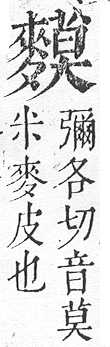 䴲
彌各切音莫
米麥皮也